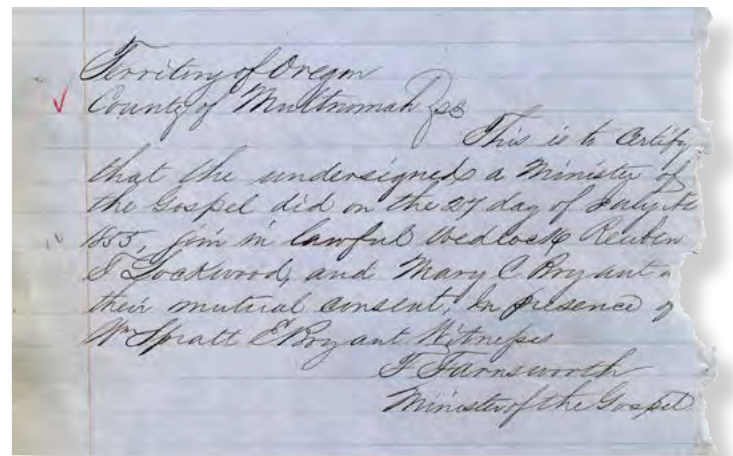 Territory of Oregon
County of Multnomah } ss
This is to Certify
that the undersigned a Minister of
the Gospel did on the 27 day of July
1855, join in lawful Wedlock Reuben
T Lockwood, and Mary C. Bryant
their mutual consent, In presence of
Wm Spratt E Bryant Witnesses
F Farnsworth
Minister of the Gospel